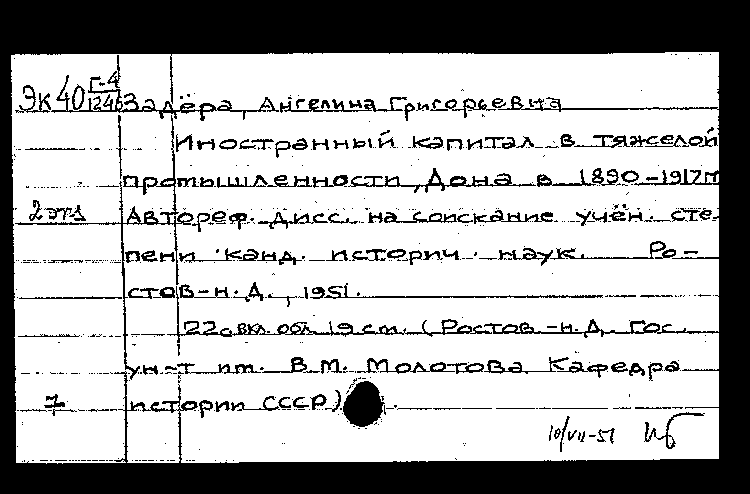 Эк40 Г-4
1246 Задёра, Ангелина Григорьевна
Иностранный капитал в тяжелой
промышленности, Дона в 1890-1917гг
2 экз Автореф. дисс. на соискание учён. сте-
пени канд. историч. наук. Ро-
стов-н.Д., 1951.
22с. вкл. обл. 19 см. (Ростов-н.Д. гос.
ун-т им. В.М. Молотова. Кафедра
7 истории СССР).
10/VII-51